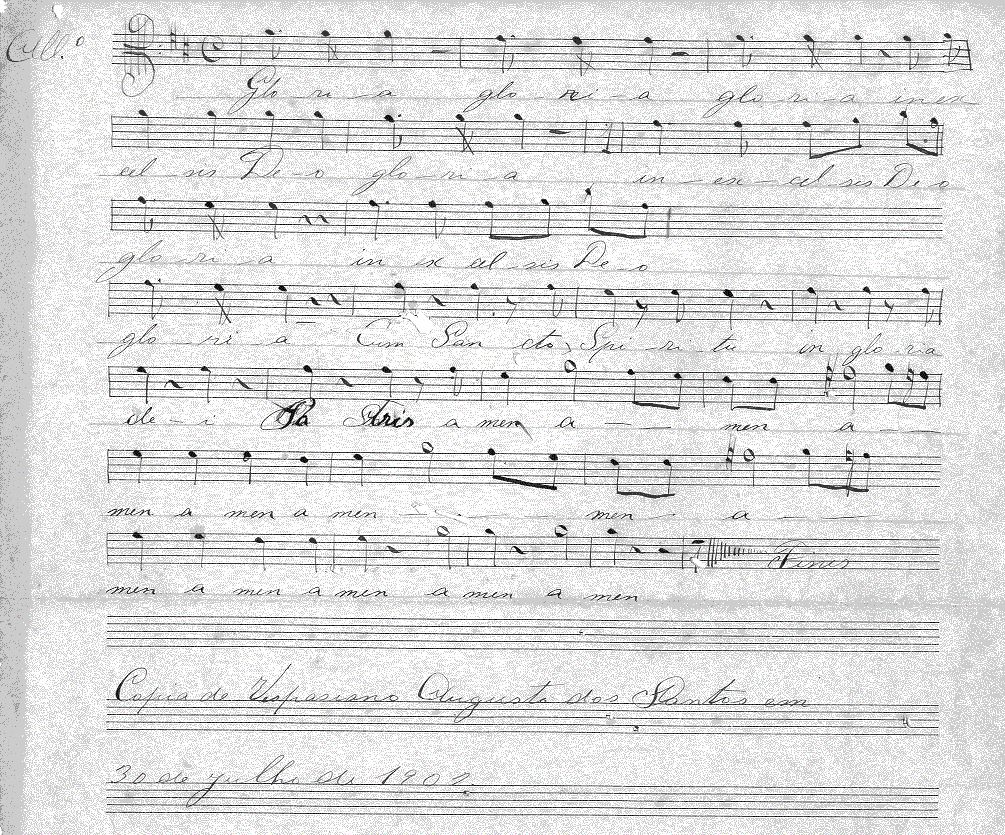 All.º
Glo - ri - a glo - ri - a glo - ri - a in ex
cel - sis De - o glo - ri - a in - ex - cel - sis De - o
glo - ri - a in ex cel - sis De - o
glo - ri - a Cum San cto Spi - ri - tu in glo - ria
de - i Pa tris a men a - - men a - -
men a men a men - - - men - a - -
men a men a men a men a men
Finis
Copia de Vespasiano Augusto dos Santos em
30 de julho de 1902